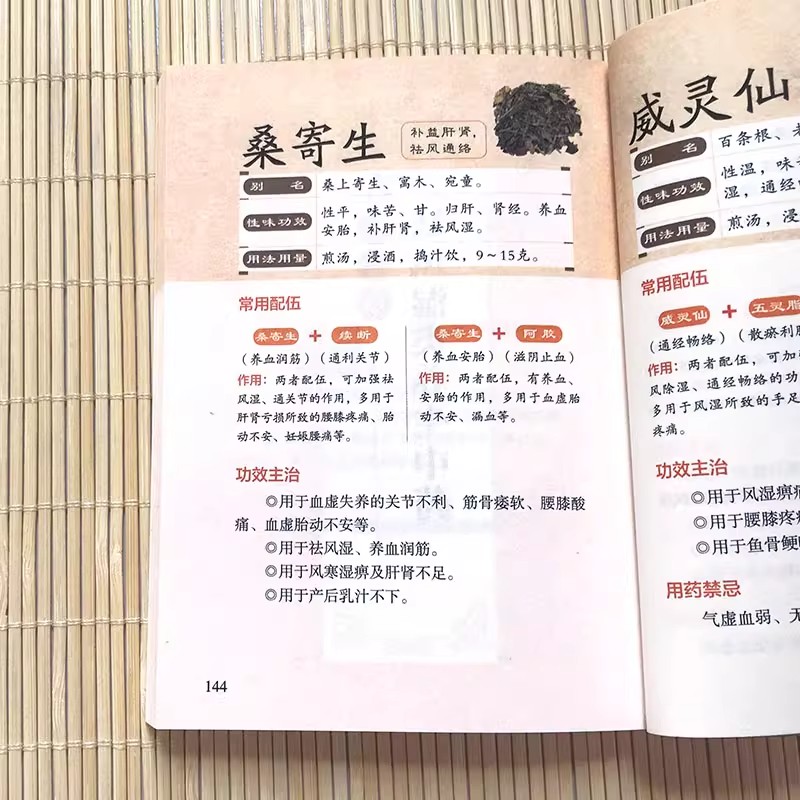 桑寄生
补益肝肾，
祛风通络
别 名 桑上寄生、寓木、宛童。
性味功效 性平，味苦、甘。归肝、肾经。养血
安胎，补肝肾，祛风湿。
用法用量 煎汤，浸酒，捣汁饮，9～15克。
常用配伍
桑寄生 + 续断
（养血润筋）（通利关节）
作用：两者配伍，可加强祛
风湿、通关节的作用，多用于
肝肾亏损所致的腰膝疼痛、胎
动不安、妊娠腰痛等。
桑寄生 + 阿胶
（养血安胎）（滋阴止血）
作用：两者配伍，有养血、
安胎的作用，多用于血虚胎
动不安、漏血等。
功效主治
◎用于血虚失养的关节不利、筋骨痿软、腰膝酸
痛、血虚胎动不安等。
◎用于祛风湿、养血润筋。
◎用于风寒湿痹及肝肾不足。
◎用于产后乳汁不下。
144
威灵仙
别 名 百条根、老
性味功效 性温，味
湿，通经
用法用量 煎汤，浸
常用配伍
威灵仙 + 五灵脂
（通经畅络）（散瘀利
作用：两者配伍，可加
风除湿、通经畅络的功
多用于风湿所致的手足
疼痛。
功效主治
◎用于风湿痹
◎用于腰膝疼
◎用于鱼骨鲠
用药禁忌
气虚血弱、无